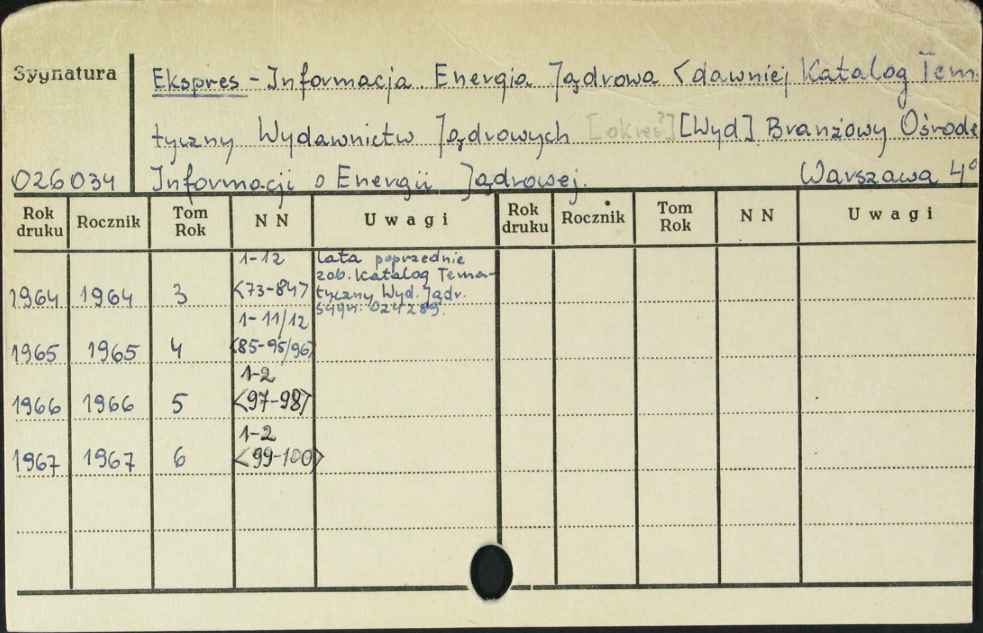 Sygnatura
Ekspres - Informacja Energia Jądrowa <dawniej Katalog Tem
tyczny Wydawnictw Jądrowych [Wyd] Branżowy Ośrode
026034 Informacji o Energii Jądrowej. Warszawa 4°
Rok druku Rocznik Tom Rok N N Uwagi Rok druku Rocznik Tom Rok N N Uwagi
1-12 lata poprzednie
zob. Katalog Tema-
1964 1964 3 <73-84> tyczny Wyd. Jądr.
sygn: 024289.
1-11/12
1965 1965 4 <85-95/96>
1-2
1966 1966 5 <97-98>
1-2
1967 1967 6 <99-100>